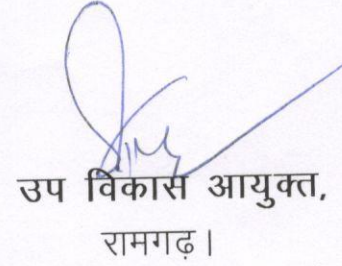 उप विकास आयुक्त,
रामगढ़।